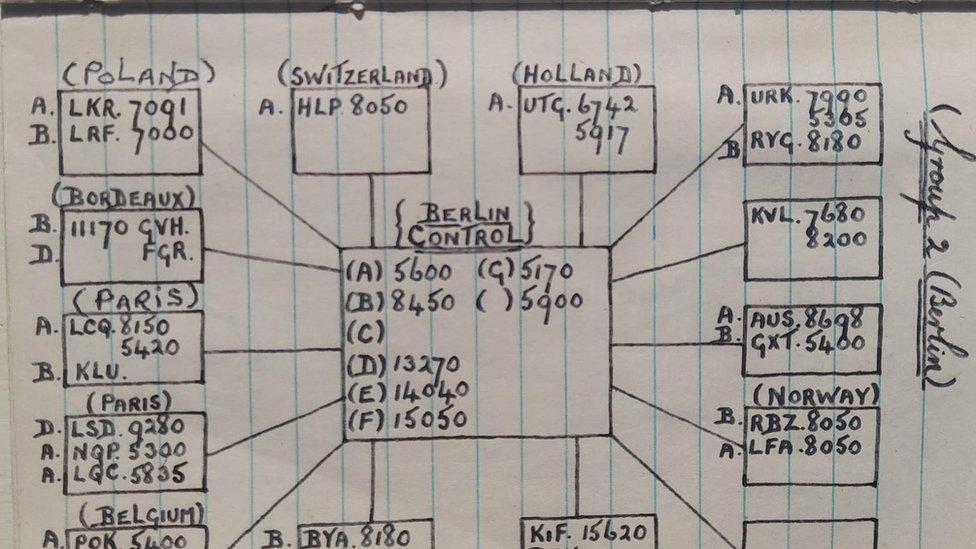 (POLAND)
A. LKR. 7091
B. LRF. 7000
(SWITZERLAND)
A. HLP. 8050
(HOLLAND)
A. UTG. 6742
5917
A. URK. 7990
5365
B RYG. 8180
(Group 2 (Berlin)
(BORDEAUX)
B. 11170 GVH.
D. FGR.
{BERLIN
CONTROL}
(A) 5600 (G) 5170
(B) 8450 ( ) 5900
(C)
(D) 13270
(E) 14040
(F) 15050
KVL. 7680
8200
(PARIS)
A. LCQ. 8150
5420
B. KLU.
A. AUS. 8698
B. GXT. 5400
(PARIS)
D. LSD. 9280
A. NQP. 5300
A. LGC. 5835
(NORWAY)
B. RBZ. 8050
A. LFA. 8050
(BELGIUM)
A. POK. 5400
B. BYA. 8180
KIF. 15620